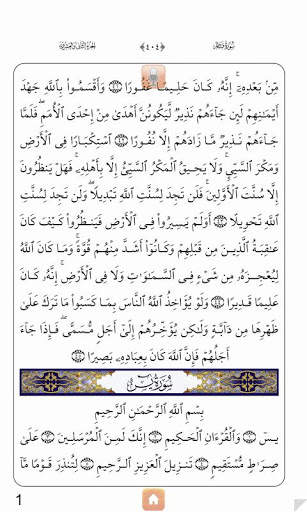 سُورَةُ فَاطِرٍ ﴿٤٠٤﴾ الجزء الثاني والعشرون
مِّنْ بَعْدِهِۦٓ ۚ إِنَّهُۥ كَانَ حَلِيمًا غَفُورًا وَأَقْسَمُوا۟ بِٱللَّهِ جَهْدَ
أَيْمَٰنِهِمْ لَئِن جَآءَهُمْ نَذِيرٌ لَّيَكُونُنَّ أَهْدَىٰ مِنْ إِحْدَى ٱلْأُمَمِ ۖ فَلَمَّا
جَآءَهُمْ نَذِيرٌ مَّا زَادَهُمْ إِلَّا نُفُورًا ٱسْتِكْبَارًا فِى ٱلْأَرْضِ
وَمَكْرَ ٱلسَّيِّئِ ۚ وَلَا يَحِيقُ ٱلْمَكْرُ ٱلسَّيِّئُ إِلَّا بِأَهْلِهِۦ ۚ فَهَلْ يَنظُرُونَ
إِلَّا سُنَّتَ ٱلْأَوَّلِينَ ۚ فَلَن تَجِدَ لِسُنَّتِ ٱللَّهِ تَبْدِيلًا ۖ وَلَن تَجِدَ لِسُنَّتِ
ٱللَّهِ تَحْوِيلًا أَوَلَمْ يَسِيرُوا۟ فِى ٱلْأَرْضِ فَيَنظُرُوا۟ كَيْفَ كَانَ
عَٰقِبَةُ ٱلَّذِينَ مِن قَبْلِهِمْ وَكَانُوٓا۟ أَشَدَّ مِنْهُمْ قُوَّةً ۚ وَمَا كَانَ ٱللَّهُ
لِيُعْجِزَهُۥ مِن شَىْءٍ فِى ٱلسَّمَٰوَٰتِ وَلَا فِى ٱلْأَرْضِ ۚ إِنَّهُۥ كَانَ
عَلِيمًا قَدِيرًا وَلَوْ يُؤَاخِذُ ٱللَّهُ ٱلنَّاسَ بِمَا كَسَبُوا۟ مَا تَرَكَ عَلَىٰ
ظَهْرِهَا مِن دَآبَّةٍ وَلَٰكِن يُؤَخِّرُهُمْ إِلَىٰٓ أَجَلٍ مُّسَمًّى ۖ فَإِذَا جَآءَ
أَجَلُهُمْ فَإِنَّ ٱللَّهَ كَانَ بِعِبَادِهِۦ بَصِيرًا
سُورَةُ يسٓ
بِسْمِ ٱللَّهِ ٱلرَّحْمَٰنِ ٱلرَّحِيمِ
يسٓ وَٱلْقُرْءَانِ ٱلْحَكِيمِ إِنَّكَ لَمِنَ ٱلْمُرْسَلِينَ عَلَىٰ
صِرَٰطٍ مُّسْتَقِيمٍ تَنزِيلَ ٱلْعَزِيزِ ٱلرَّحِيمِ لِتُنذِرَ قَوْمًا مَّآ
1